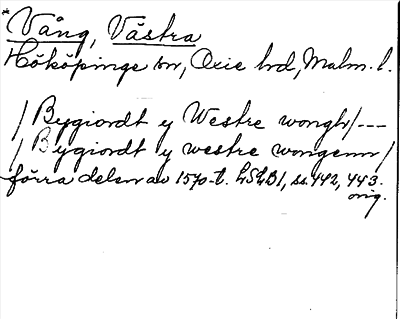 * Vång, Västra
Hököpinge sn, Oxie hd, Malm. l.
/ Bygiordt y Westre wongh/ ---
/ Bygiordt y westre wongenn/
förra delen av 1570-t. LSLB1, ss. 442, 443.
orig.